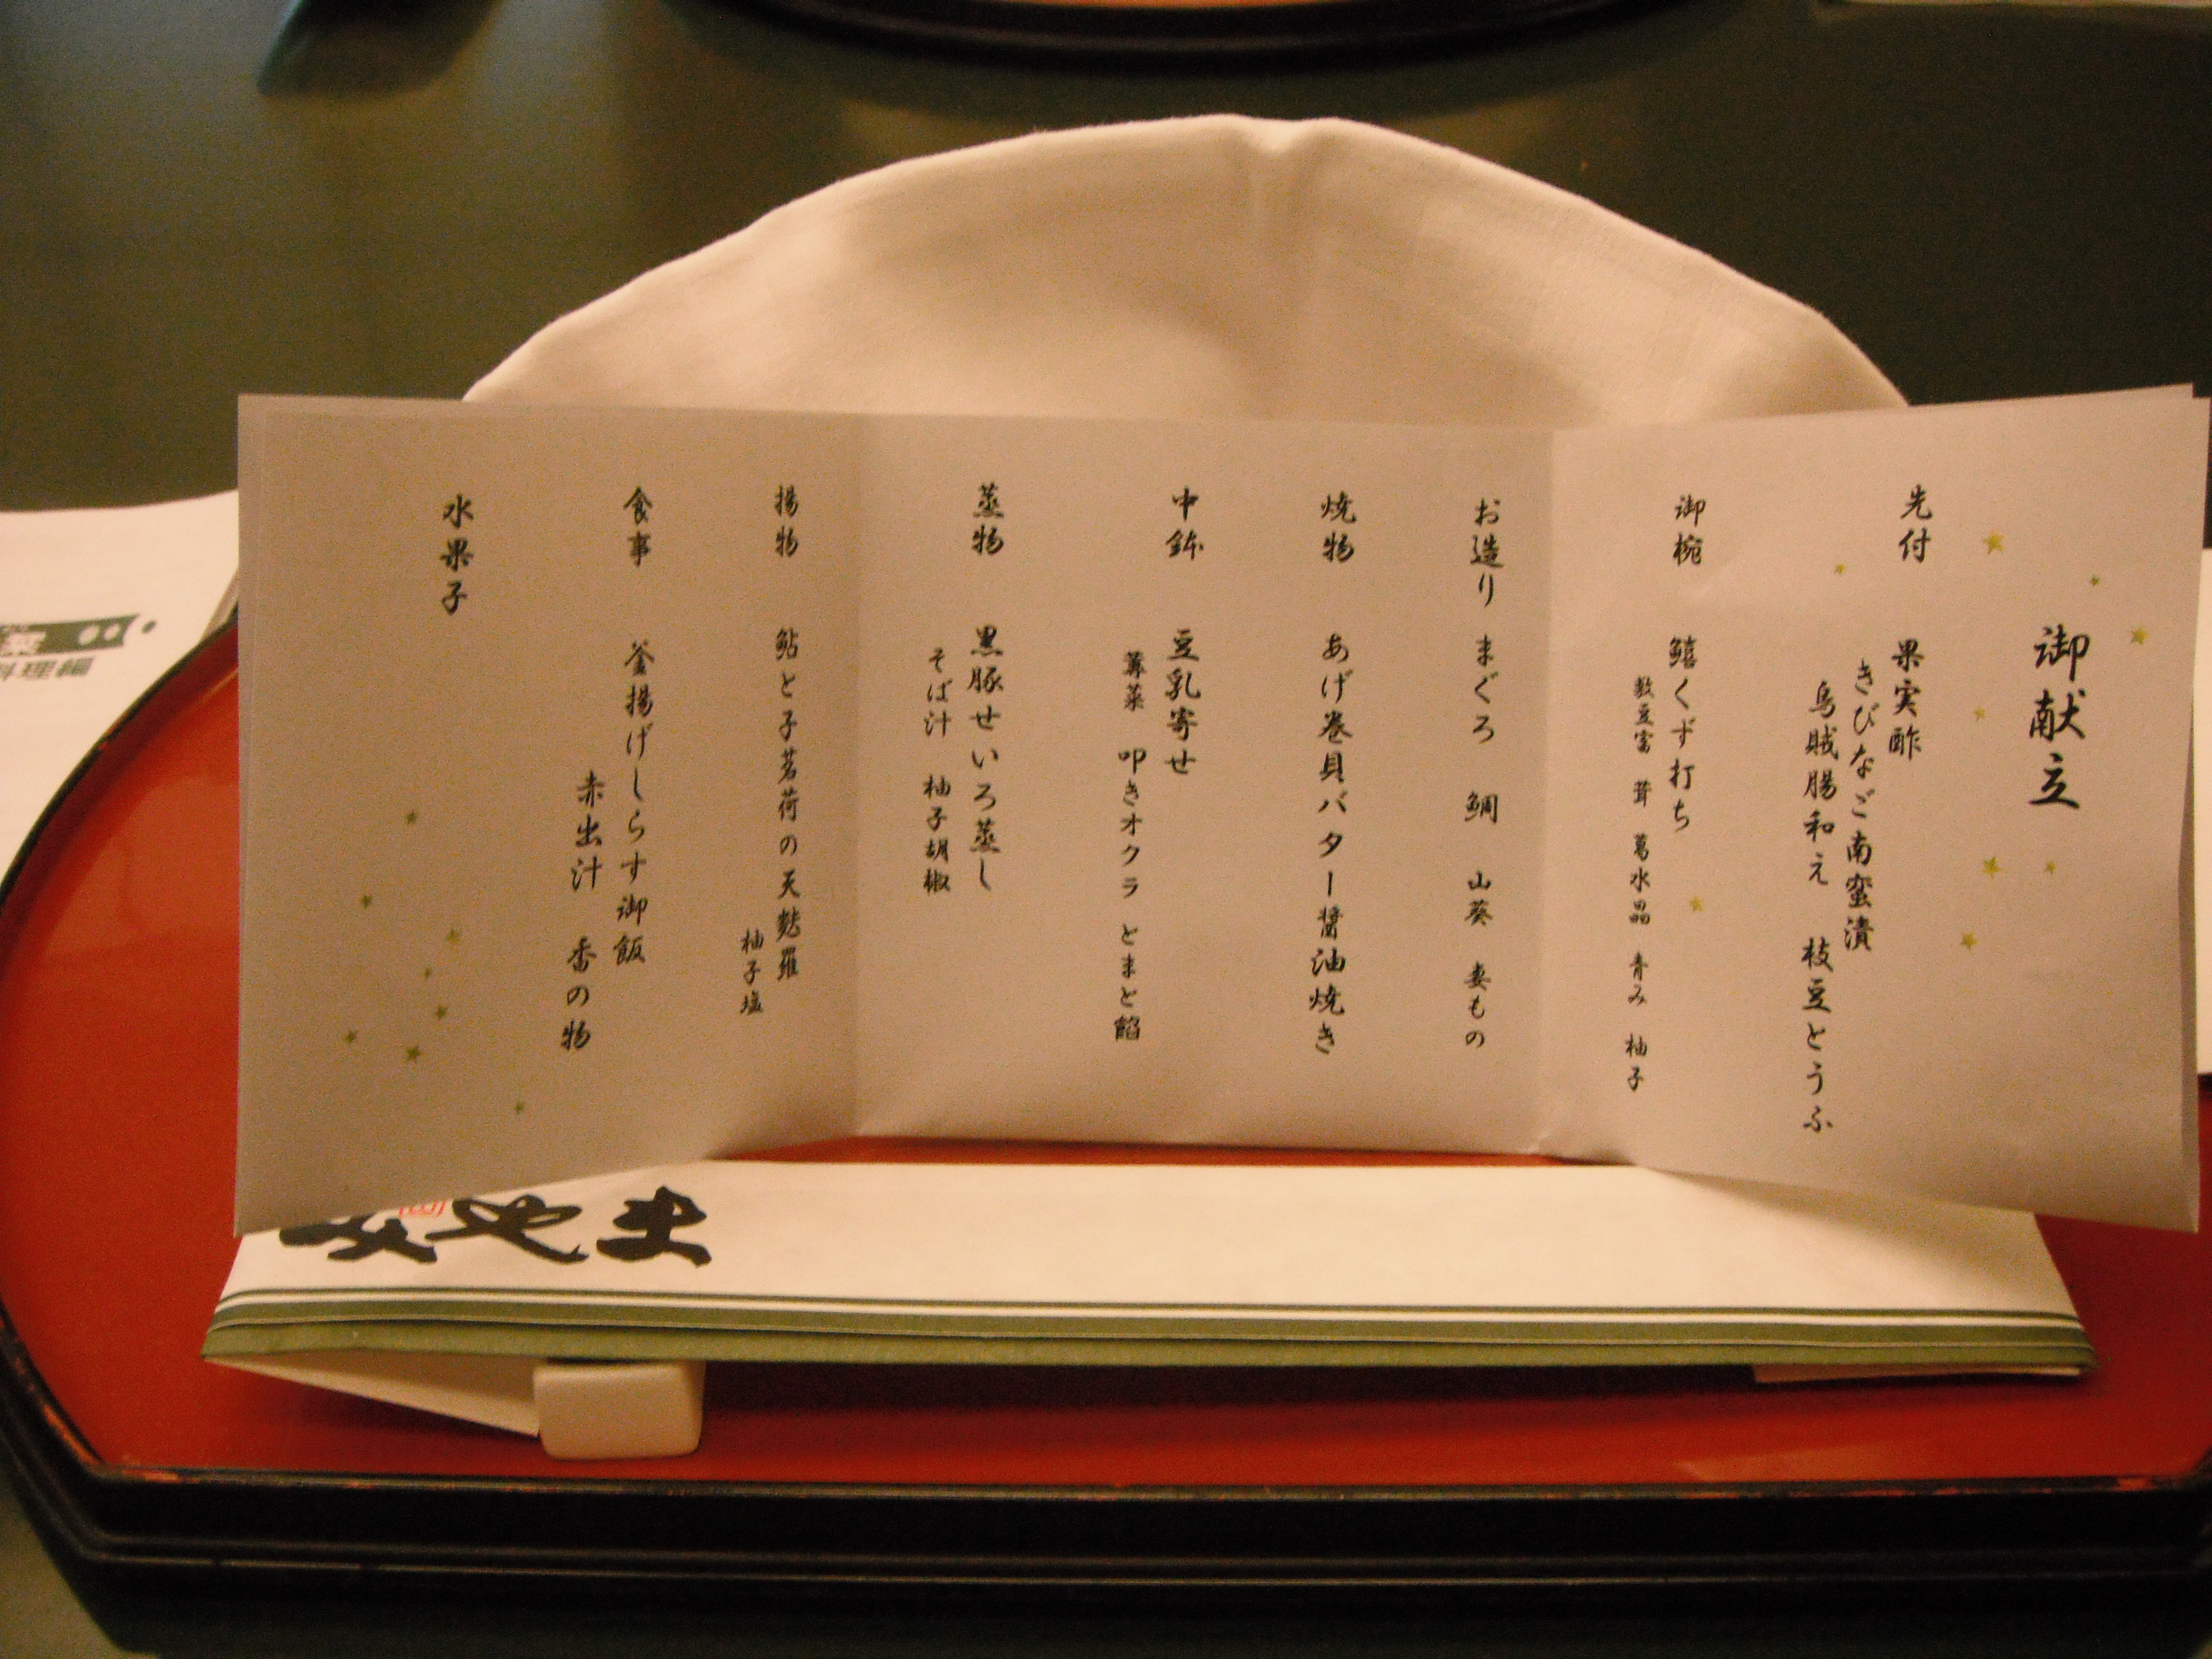 御献立
先付 果実酢
きびなご南蛮漬
烏賊腸和え 枝豆とうふ
御椀 鱚くず打ち
敷豆富 茸 葛水晶 青み 柚子
お造り まぐろ 鯛 山葵 妻もの
焼物 あげ巻貝バター醤油焼き
中鉢 豆乳寄せ
蓴菜 叩きオクラ とまと餡
蒸物 黒豚せいろ蒸し
そば汁 柚子胡椒
揚物 鮎と子茗荷の天麩羅
柚子塩
食事 釜揚げしらす御飯
赤出汁 香の物
水果子